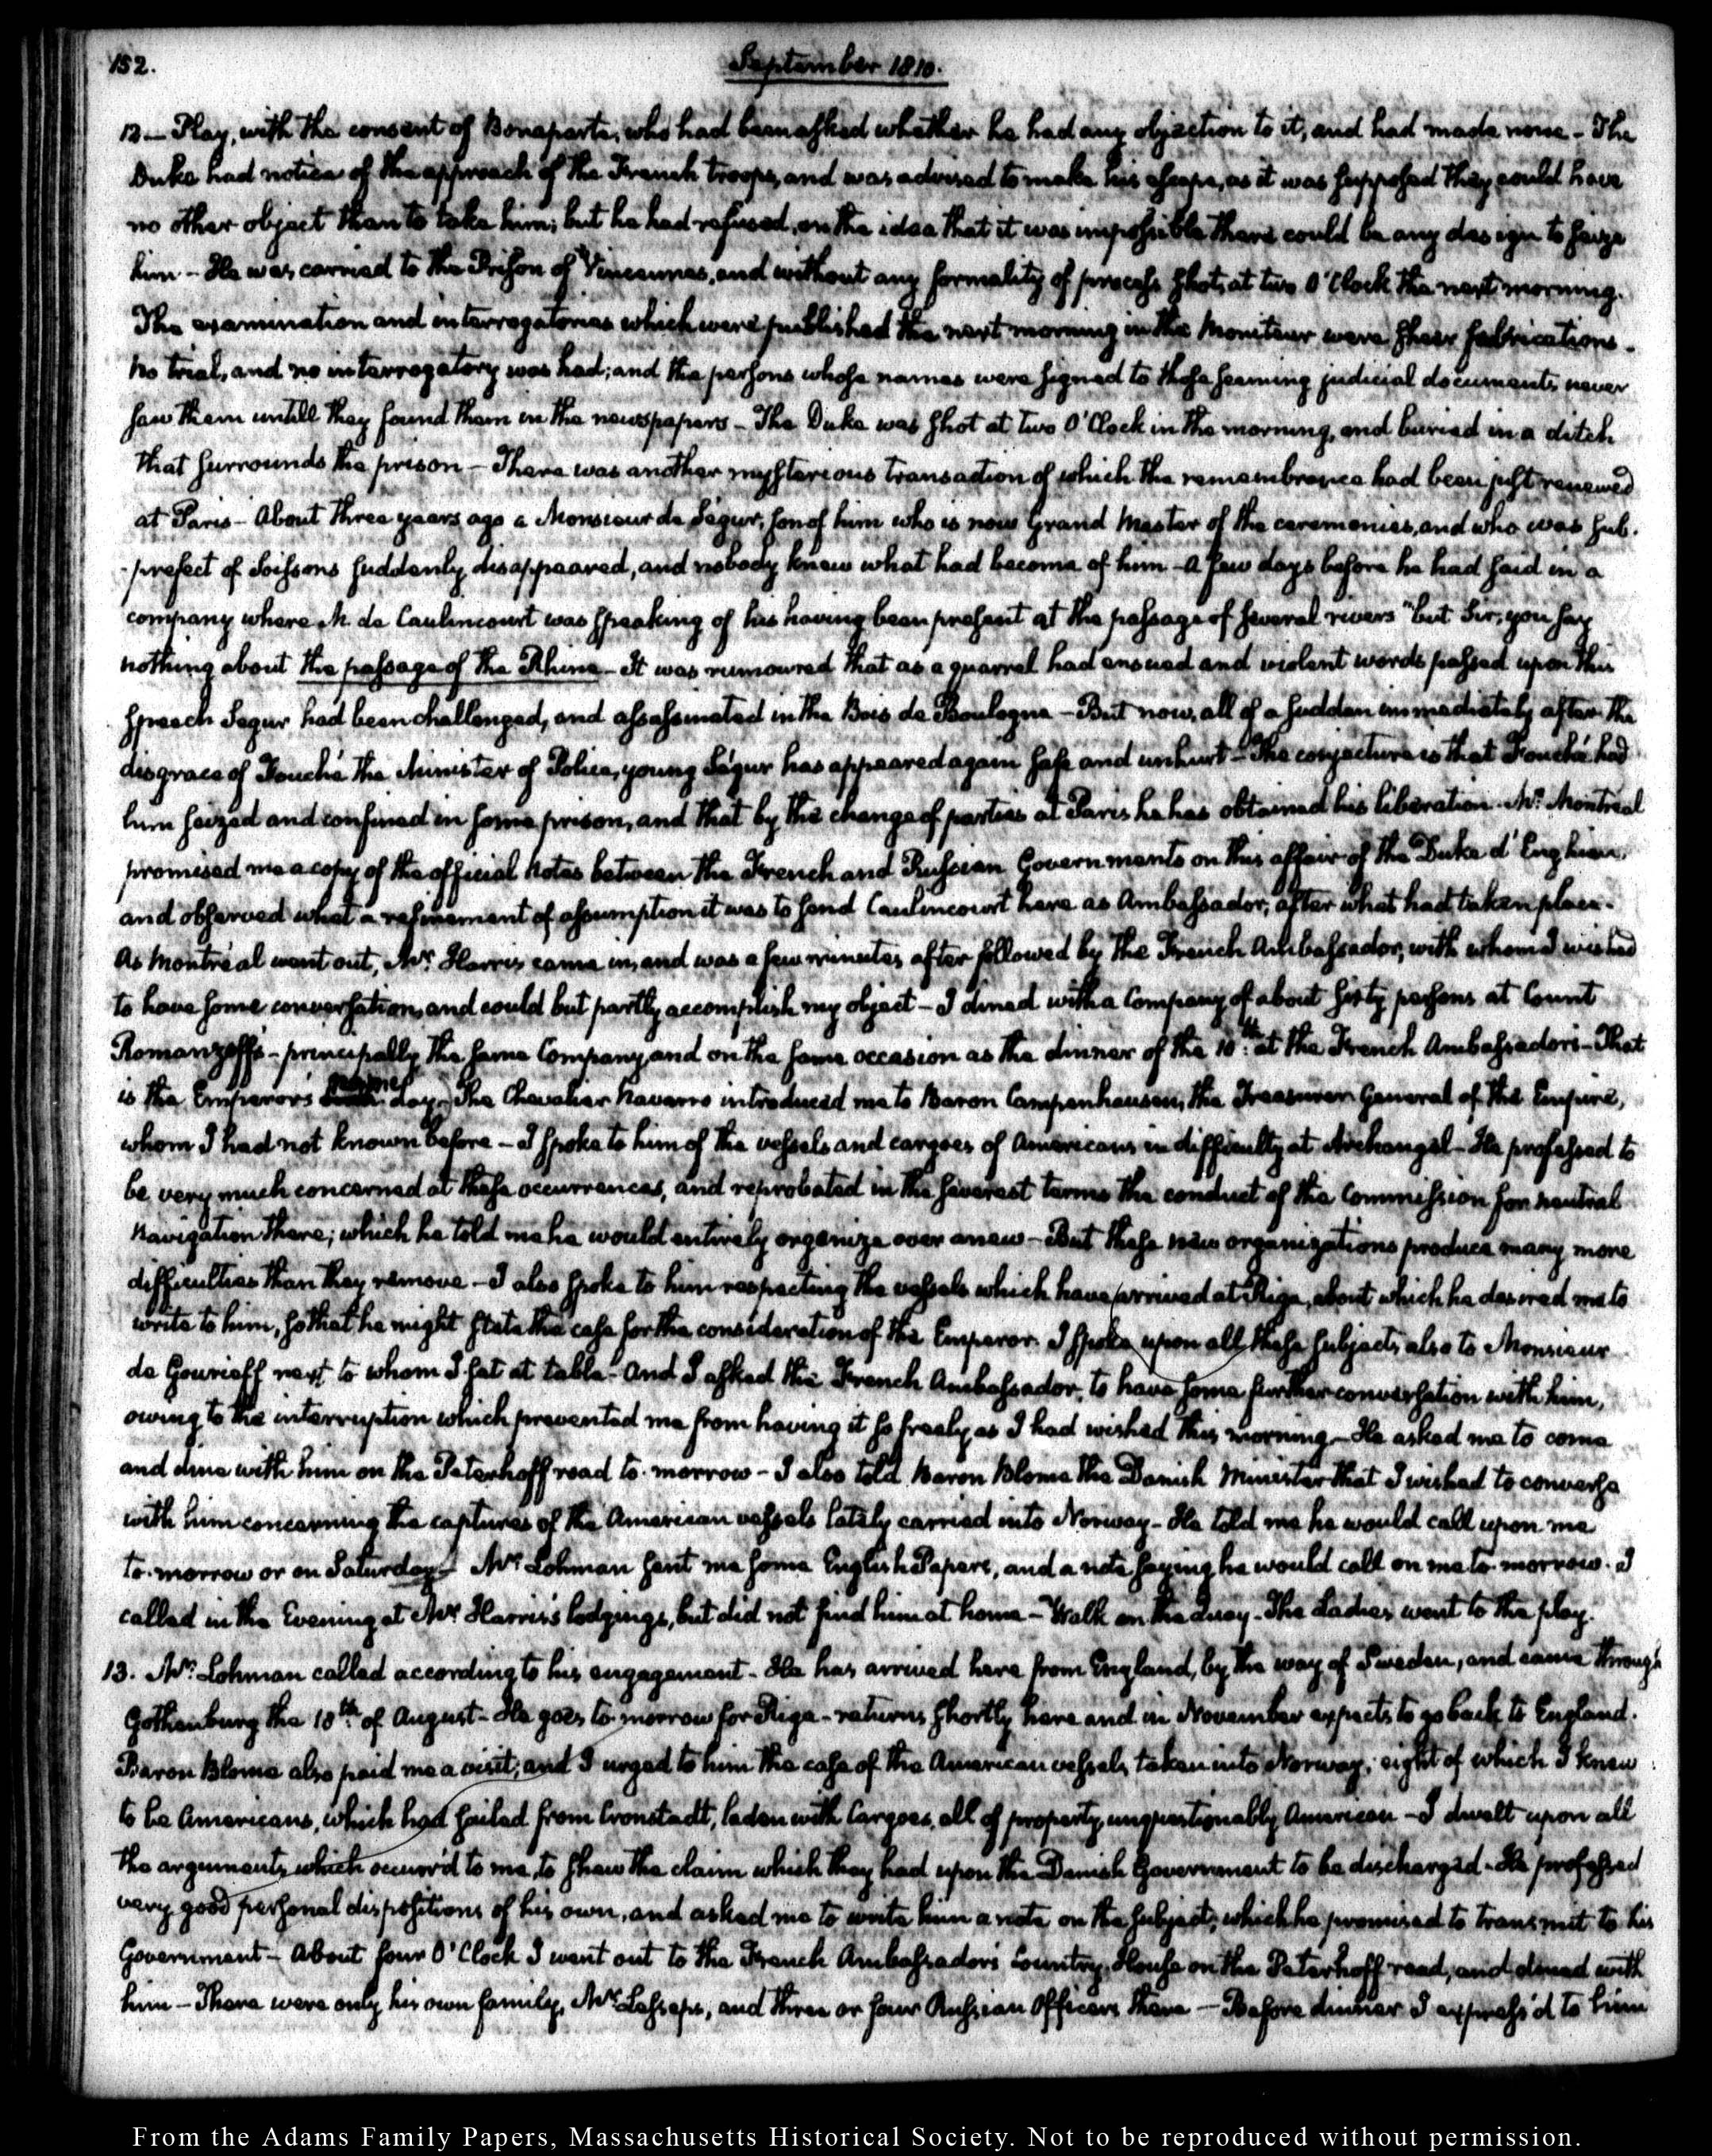 152.
September 1810.
12— Play, with the consent of Bonaparte, who had been asked whether he had any objection to it, and had made none – The
Duke had notice of the approach of the French troops, and was advised to make his escape, as it was supposed they could have
no other object than to take him; but he had refused, on the idea that it was impossible there could be any design to seize
him – He was carried to the Prison of Vincennes, and without any formality of process shot, at two O'Clock the next morning.
The examination and interrogatories which were published the next morning in the Moniteur were sheer fabrications.
No trial, and no interrogatory was had; and the persons whose names were signed to those seeming judicial documents never
saw them untill they found them in the newspapers – The Duke was shot at two O'Clock in the morning, and buried in a ditch
that surrounds the prison – There was another mysterious transaction of which the remembrance had been just renewed
at Paris – About three years ago a Monsieur de Ségur, son of him who is now Grand Master of the ceremonies, and who was sub-
-prefect of Soissons suddenly disappeared, and nobody knew what had become of him – A few days before he had said in a
company where M. de Caulincourt was speaking of his having been present at the passage of several rivers "but Sir, you say
nothing about the passage of the Rhine – It was rumoured that as a quarrel had ensued and violent words passed upon this
speech Segur had been challenged, and assassinated in the Bois de Boulogne – But now, all of a sudden immediately after the
disgrace of Fouché the Minister of Police, young Ségur has appeared again safe and unhurt – The conjecture is that Fouché had
him seized and confined in some prison, and that by the change of parties at Paris he has obtained his liberation. Mr. Montréal
promised me a copy of the official Notes between the French and Russian Governments on this affair of the Duke d'Enghien,
and observed what a refinement of assumption it was to send Caulincourt here as Ambassador, after what had taken place.
As Montréal went out, Mr. Harris came in, and was a few minutes after followed by the French Ambassador, with whom I wished
to have some conversation, and could but partly accomplish my object – I dined with a Company of about sixty persons at Count
Romanzoff's – principally the same Company, and on the same occasion as the dinner of the 10th. at the French Ambassador's – That
is the Emperor's name day. The Chevalier Navarro introduced me to Baron Campenhausen, the Treasurer General of the Empire,
whom I had not known before – I spoke to him of the vessels and cargoes of Americans in difficulty at Archangel – He professed to
be very much concerned at these occurrences, and reprobated in the severest terms the conduct of the Commission for neutral
Navigation there; which he told me he would entirely organize over anew – But these new organizations produce many more
difficulties than they remove – I also spoke to him respecting the vessels which have arrived at Riga, about which he desired me to
write to him, so that he might state the case for the consideration of the Emperor. I spoke upon all these subjects also to Monsieur
de Gourieff next to whom I sat at table – And I asked the French Ambassador, to have some further conversation with him,
owing to the interruption which prevented me from having it so freely as I had wished this morning – He asked me to come
and dine with him on the Peterhoff road to-morrow – I also told Baron Blome the Danish Minister that I wished to converse
with him concerning the captures of the American vessels lately carried into Norway – He told me he would call upon me
to-morrow or on Saturday – Mr. Lohman sent me some English Papers, and a note saying he would call on me to-morrow. I
called in the Evening at Mr. Harris's lodgings, but did not find him at home – Walk on the Quay – The Ladies went to the play.
13. Mr. Lohman called according to his engagement – He has arrived here from England, by the way of Sweden, and came through
Gothenburg the 18th. of August – He goes to-morrow for Riga – returns shortly here and in November expects to go back to England.
Baron Blome also paid me a visit; and I urged to him the case of the American vessels taken into Norway; eight of which I knew
to be Americans, which had sailed from Cronstadt, laden with Cargoes, all of property, unquestionably American – I dwelt upon all
the arguments which occurr'd to me, to shew the claim which they had upon the Danish Government to be discharged – He professed
very good personal dispositions of his own, and asked me to write him a note on the subject, which he promised to transmit to his
Government – About four O'Clock I went out to the French Ambassador's Country-House on the Peterhoff road, and dined with
him – There were only his own family, Mr. Lesseps, and three or four Russian Officers there – Before dinner I express'd to him
From the Adams Family Papers, Massachusetts Historical Society. Not to be reproduced without permission.